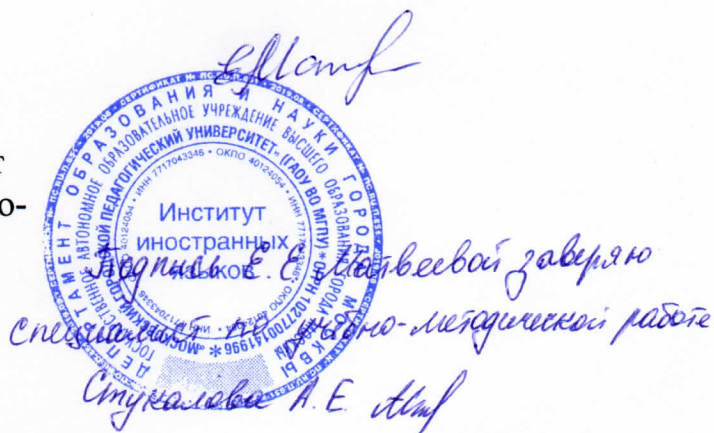 т
о-
СЕРТИФИКАТ №
ДЕПАРТАМЕНТ ОБРАЗОВАНИЯ И НАУКИ ГОРОДА МОСКВЫ
ГОСУДАРСТВЕННОЕ АВТОНОМНОЕ ОБРАЗОВАТЕЛЬНОЕ УЧРЕЖДЕНИЕ ВЫСШЕГО ОБРАЗОВАНИЯ ГОРОДА МОСКВЫ
«МОСКОВСКИЙ ГОРОДСКОЙ ПЕДАГОГИЧЕСКИЙ УНИВЕРСИТЕТ» (ГАОУ ВО МГПУ) * ОГРН 1027700141996 *
ИНН 7717043346 • ОКПО 40124054 •
Институт
иностранных
языков
Подпись Е. Е. Матвеевой заверяю
специалист по учебно-методической работе
Стукалова А. Е.